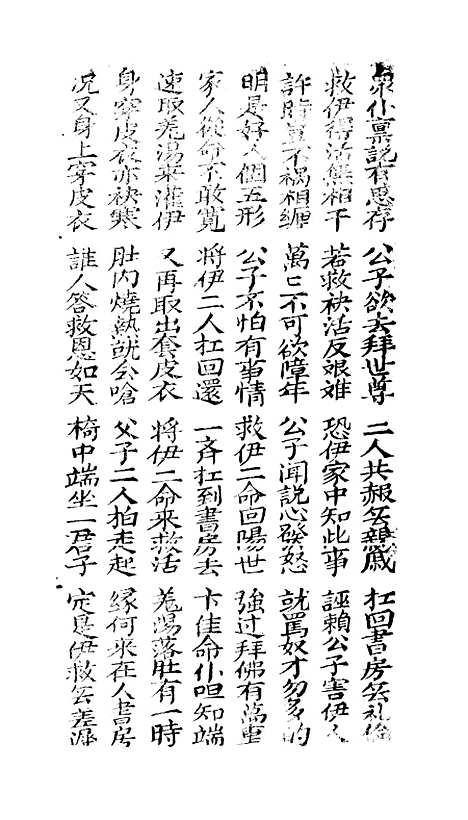 眾仆禀説有思存 公子欲去拜世尊 二人共赧厶親戚 扛回書房厶礼倫
救伊得活無相干 若救袂活反艰难 恐伊家中知此事 誣賴公子害伊人
許時不禍相纏 萬〻不可欲障年 公子闻説心發怒 就罵奴才勿多的
明是好人個五形 公子不怕有事情 救伊二命回陽世 強过拜佛有萬重
家人從命不敢寬 將伊二人扛回還 一齐扛到書房去 卞佳命仆呾知端
速取羌湯來灌伊 又再取出套皮衣 將伊二命來救活 羌湯落肚有一時
身穿皮衣亦袂寒 肚内燒熱就会喰 父子二人拍走起 緣何來在人書房
况又身上穿皮衣 誰人答救恩如天 椅中端坐一君子 定是伊救厶差遲